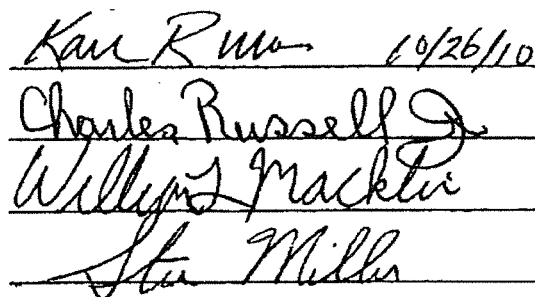 Karl R 10/26/10
Charles Russell Jr
William L Macklin
Miller